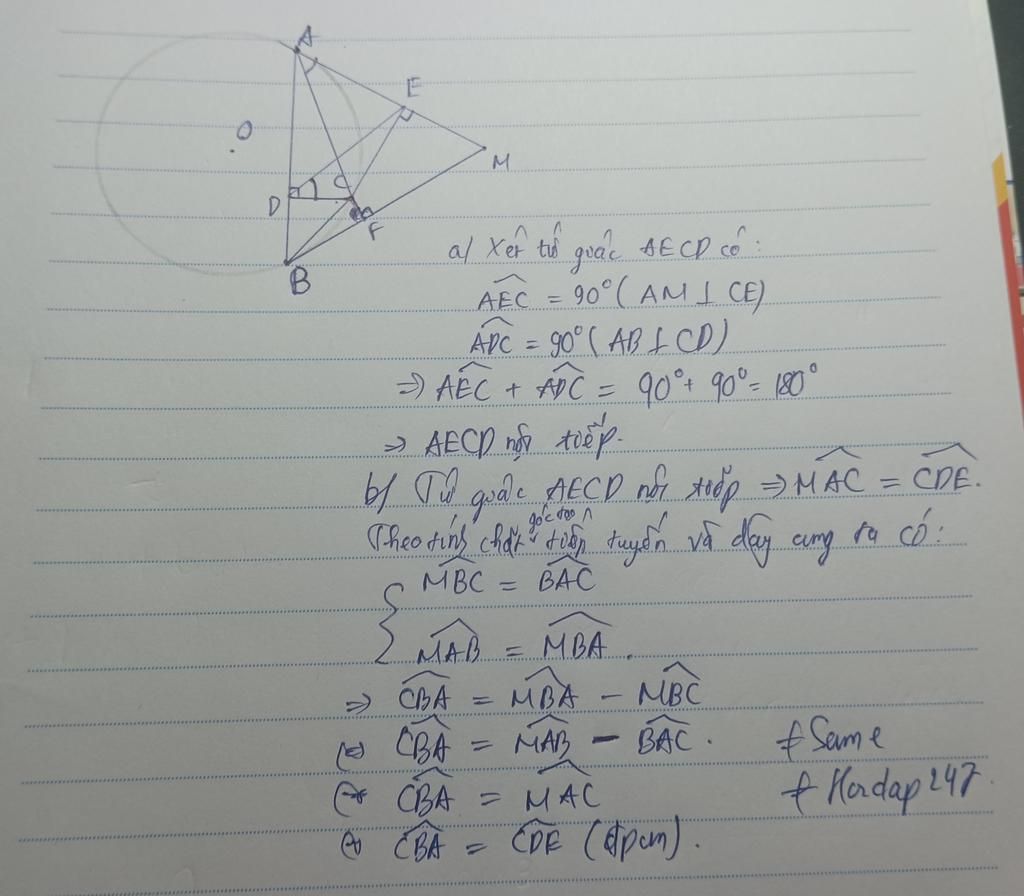 A
E
O
M
D
C
F
B
a/ Xét tứ giác AECD có:
$\widehat{AEC}$ = 90° ( AM ⊥ CE)
$\widehat{ADC}$ = 90° ( AB ⊥ CD)
=> $\widehat{AEC}$ + $\widehat{ADC}$ = 90° + 90° = 180°
=> AECD nội tiếp.
b/ Tứ giác AECD nội tiếp => $\widehat{MAC}$ = $\widehat{CDE}$.
Theo tính chất góc tạo tiếp tuyến và dây cung ta có:
{ $\widehat{MBC}$ = $\widehat{BAC}$
$\widehat{MAB}$ = $\widehat{MBA}$.
=> $\widehat{CBA}$ = $\widehat{MBA}$ - $\widehat{MBC}$
(=) $\widehat{CBA}$ = $\widehat{MAB}$ - $\widehat{BAC}$. # Same
$\widehat{CBA}$ = $\widehat{MAC}$ # Hoidap247.
$\widehat{CBA}$ = $\widehat{CDE}$ (đpcm).